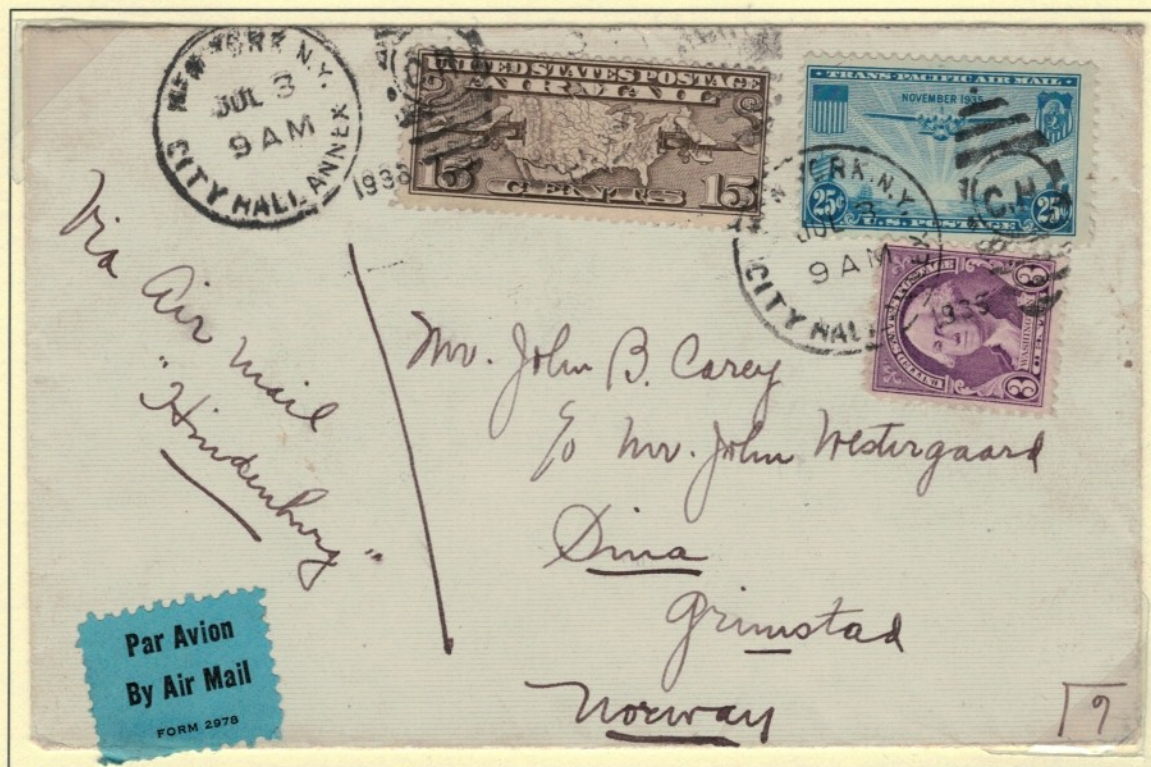 NEW YORK N.Y.
JUL 3
9 AM
1936
CITY HALL ANNEX
UNITED STATES POSTAGE
AIR MAIL
15 CENTS 15
TRANS-PACIFIC AIR MAIL
NOVEMBER 1935
25¢ 25¢
U.S. POSTAGE
YORK, N.Y.
JUL 3
9 AM
1936
CITY HALL
C.H.
UNITED STATES POSTAGE
3 3
WASHINGTON
Via
Air Mail
"Hindenburg"
Mr. John B. Carey
c/o Mr. John Westergaard
Dina
Grimstad
Norway
Par Avion
By Air Mail
FORM 2978
9